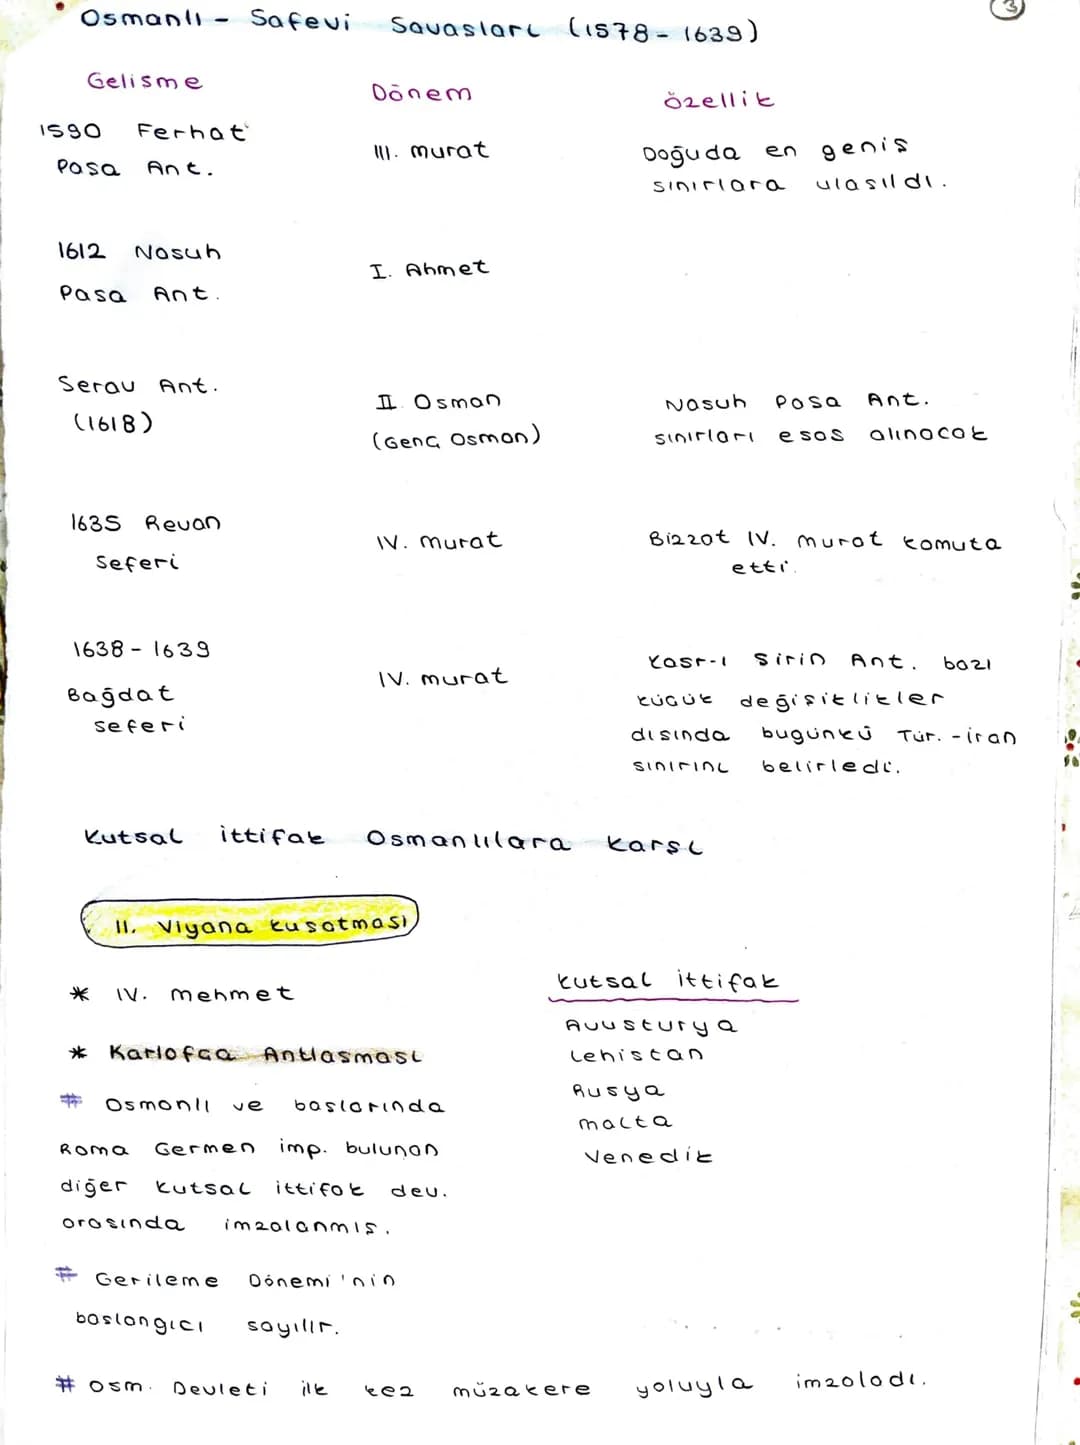 Osmanlı - Safevi Savasları (1578 - 1639)
3
Gelisme Dönem özellik
1590 Ferhat III. murat Doğuda en genis
Pasa Ant. sınırlara ulasıldı.
1612 Nasuh I. Ahmet
Pasa Ant.
Serav Ant. II. Osman Nasuh Pasa Ant.
(1618) (Genç Osman) sınırları esas alınacak
1635 Revan IV. murat Bizzat IV. murat komuta
Seferi etti.
1638 - 1639 IV. murat Kasr-ı sirin Ant. bazı
Bağdat küçük değişiklikler
seferi dısında bugünkü Tür. - iran
sınırını belirledi.
Kutsal ittifak Osmanlılara karşı
II. Viyana kusatması
* IV. mehmet
* Karlofça Antlasması
# Osmanlı ve baslarında
Roma Germen imp. bulunan
diğer kutsal ittifak dev.
arasında imzalanmış.
# Gerileme Dönemi'nin
baslangıcı sayılır.
kutsal ittifak
Avusturya
Lehistan
Rusya
malta
Venedik
# Osm. Devleti ilk kez müzakere yoluyla imzaladı.